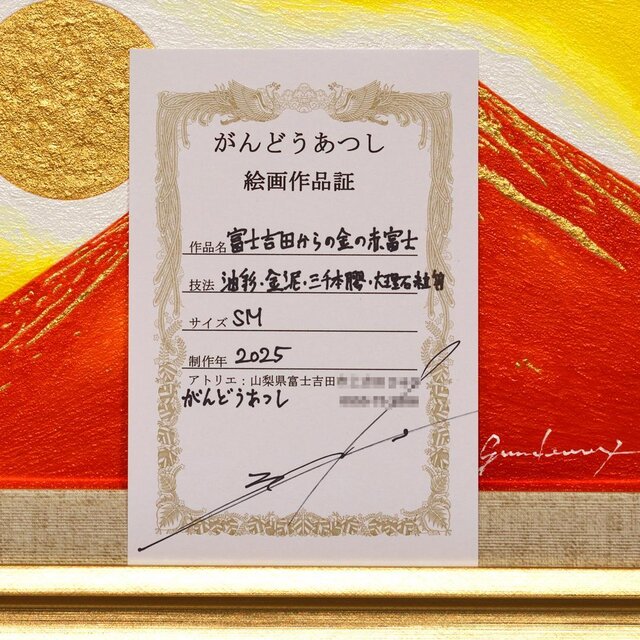 がんどうあつし
絵画作品証
作品名 富士吉田からの金の赤富士
技法 油彩・金泥・三千本膠・大理石粒 等
サイズ SM
制作年 2025
アトリエ：山梨県富士吉田
がんどうあつし